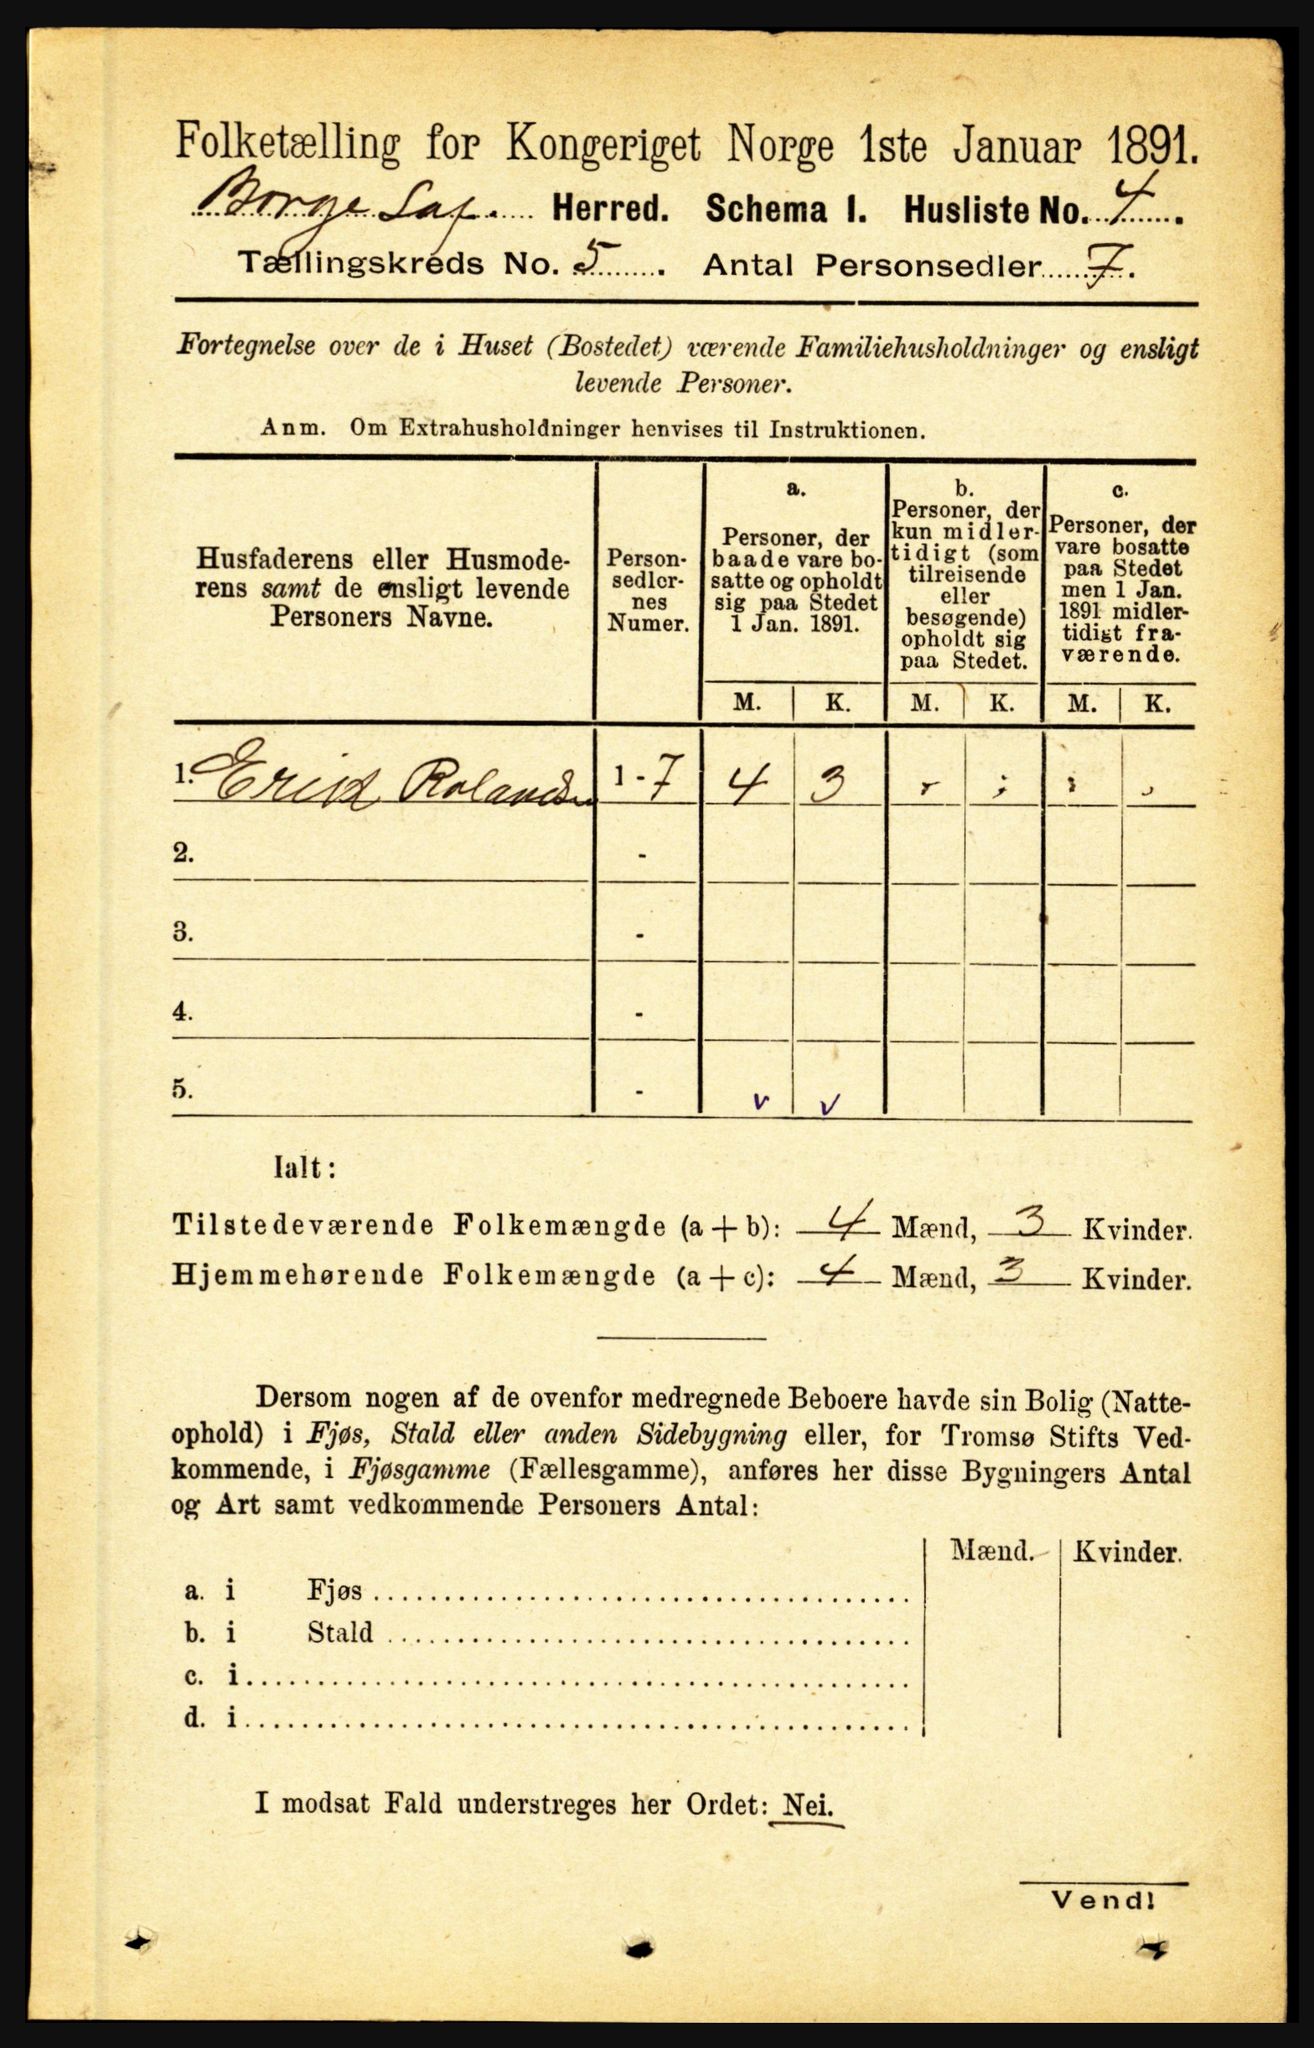 Folketælling for Kongeriget Norge 1ste Januar 1891.
Borge Herred. Schema I. Husliste No. 4.
Tællingskreds No. 5. Antal Personsedler 7.
Fortegnelse over de i Huset (Bostedet) værende Familiehusholdninger og ensligt
levende Personer.
Anm. Om Extrahusholdninger henvises til Instruktionen.
Husfaderens eller Husmode-
rens samt de ensligt levende
Personers Navne.
Person-
sedler-
nes
Numer.
a.
Personer, der
baade vare bo-
satte og opholdt
sig paa Stedet
1 Jan. 1891.
b.
Personer, der
kun midler-
tidigt (som
tilreisende
eller
besøgende)
opholdt sig
paa Stedet.
c.
Personer, der
vare bosatte
paa Stedet
men 1 Jan.
1891 midler-
tidigt fra-
værende.
M. K. M. K. M. K.
1. Erik Rolandsen 1 - 7 4 3
2. -
3. -
4. -
5. - v v
Ialt:
Tilstedeværende Folkemængde (a + b): 4 Mænd, 3 Kvinder.
Hjemmehørende Folkemængde (a + c): 4 Mænd, 3 Kvinder.
Dersom nogen af de ovenfor medregnede Beboere havde sin Bolig (Natte-
ophold) i Fjøs, Stald eller anden Sidebygning eller, for Tromsø Stifts Ved-
kommende, i Fjøsgamme (Fællesgamme), anføres her disse Bygningers Antal
og Art samt vedkommende Personers Antal:
Mænd. Kvinder.
a. i Fjøs
b. i Stald
c. i
d. i
I modsat Fald understreges her Ordet: Nei.
Vend!